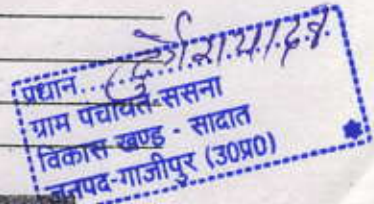 प्रधान..........
ग्राम पंचायत-ससना
विकास खण्ड - सादात
जनपद-गाजीपुर (उ0प्र0)